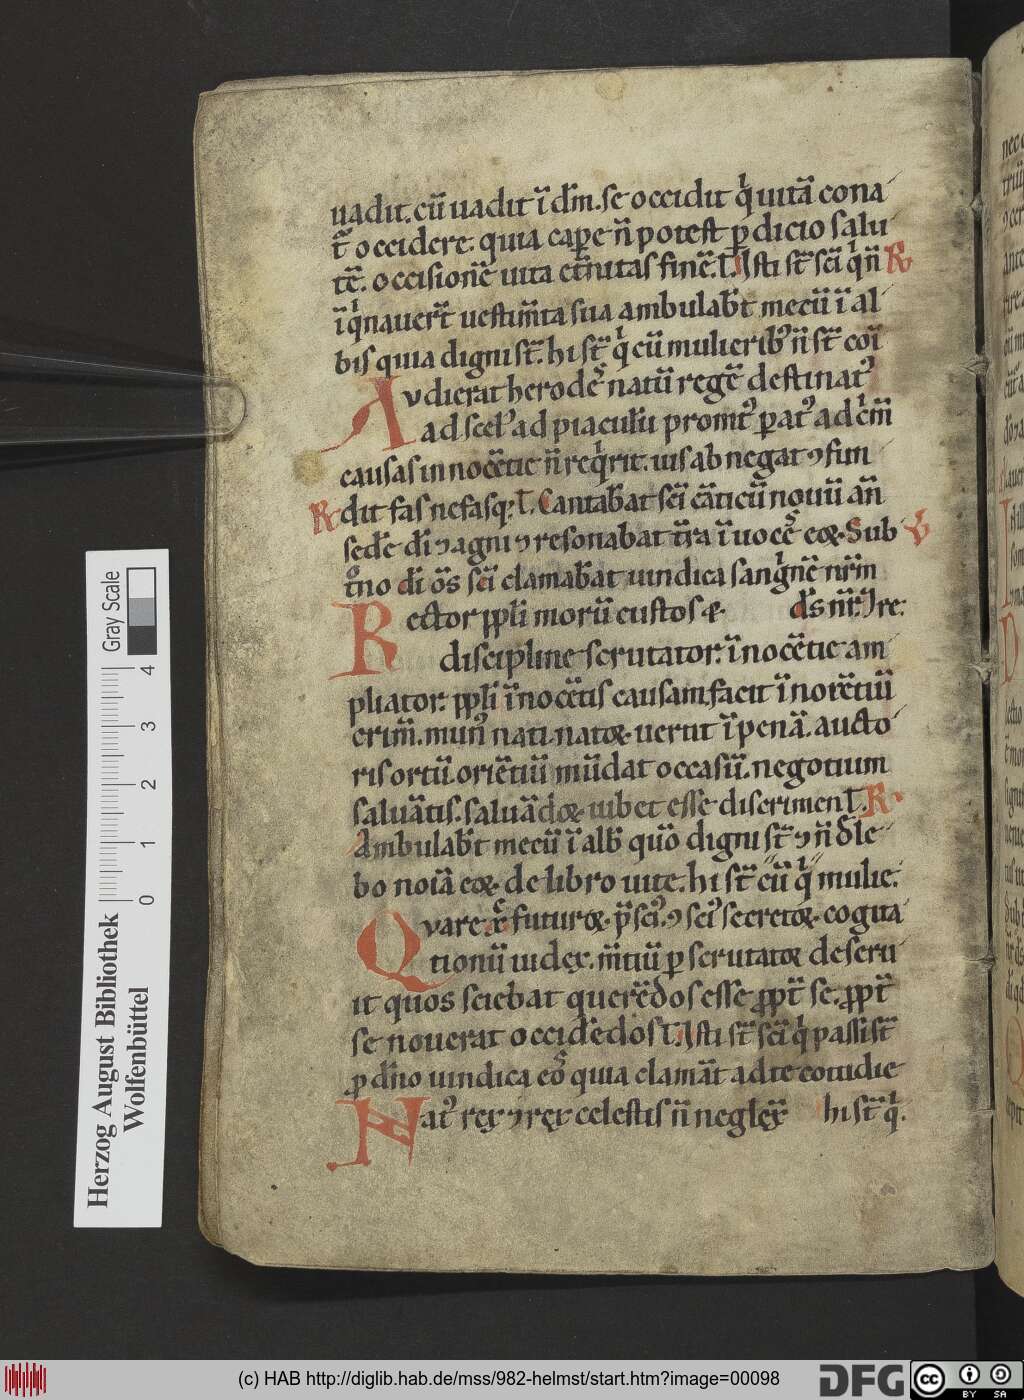 uadit. cū uadit ī dm̄. se occidit q̇ uitā cona
t̄ occidere. quia caꝑe n̄ potest ꝑdicio salu
tē. occisionē uita etn̄itas finē. T. Isti st̄ sc̄i q̇ n̄ R
īq̇nauer̄t uestim̄ta sua ambulab̄t mecū ī al
bis quia digni st̄. hi st̄ q̇ cū mulierib᷒ n̄ st̄ coī
Avdierat herodes̄ natū regē destinat᷒
ad scel᷒ ad piaculū promt᷒ parat᷒ ad c̍m̄
causas innocētie n̄ req̇rit. uis abnegat ⁊ fun
R dit fas nefasq; T. Cantab̄at sc̄i cāticū nouū an̄
sedē dī ⁊ agni ⁊ resonabat tr̄a ī uoces̄ eoꝝ. Sub V
tn̊o dī os̄ sc̄i clamab̄at uindica sangn̍ē nr̄m
Rector ppl̄i morū custos ⁊ ds̄ nr̄. Ire.
discipline scrutator. īnocētie am
pliator. ppl̄i īnocētis causam facit īnocētiū
crim̄. mun᷒ nati natoꝝ uertit ī penā. aucto
ris ortū. oriētiū mūdat occasū. negotium
saluātis. saluādoꝝ iubet esse discrimen T. R
Ambulab̄t mecū ī alb̄ qūo digni st̄ ⁊ n̄ dl̄e
bo noīa eoꝝ de libro uite. hi st̄ cū q̇ mulie.
Qvare xp̄c futuroꝝ p̄sci᷒ ⁊ sci᷒ secretoꝝ cogita
tionū iudex. m̄tiū ꝑscrutatoꝝ deseru
it quos sciebat querēdos esse ꝓpt̄ se. ꝓpt̄
se nouerat occidēdos T. Isti st̄ sc̄i q̇ passi st̄
ꝓ dn̄o uindica eos̄ quia clamāt ad te cotidie
Nat᷒ rex ⁊ rex celestis n̄ neglex̄ hi st̄ q̇.
Gray Scale
0 1 2 3 4
Herzog August Bibliothek
Wolfenbüttel
(c) HAB http://diglib.hab.de/mss/982-helmst/start.htm?image=00098
DFG
cc BY SA